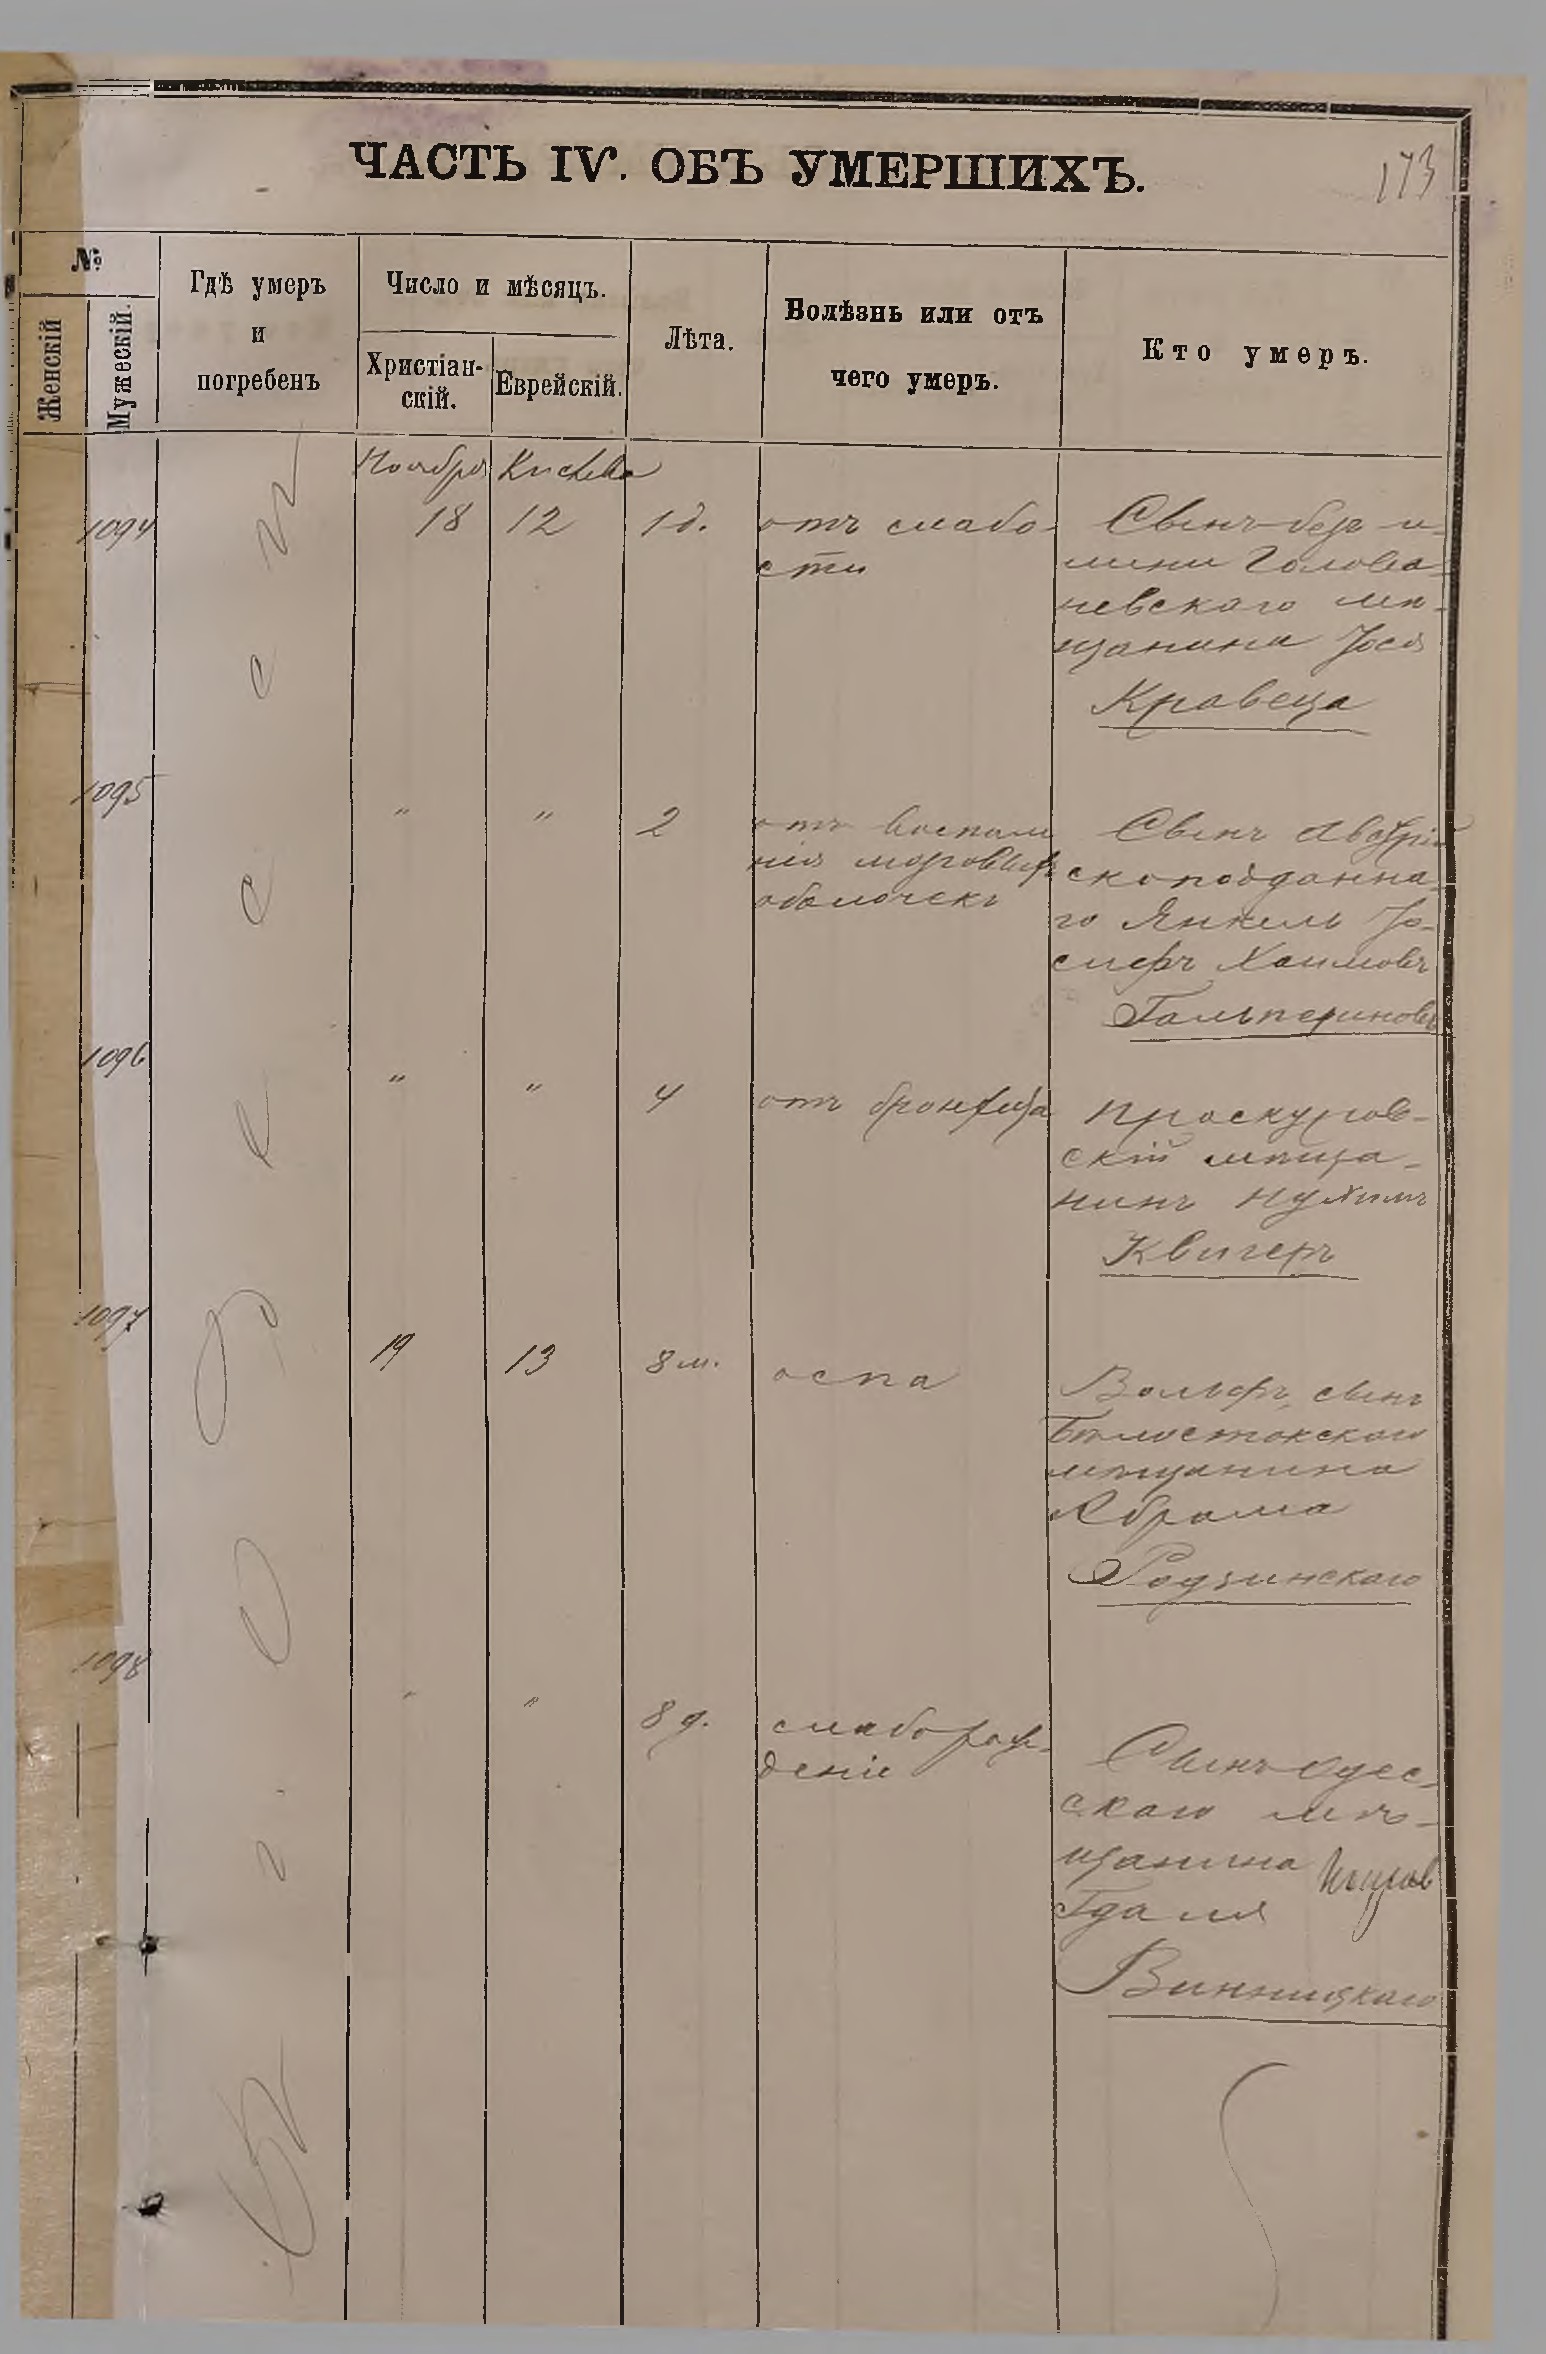 ЧАСТЬ IV. ОБЪ УМЕРШИХЪ.
173
№
Женскій
Мужескій.
Гдѣ умеръ
и
погребенъ
Число и мѣсяцъ.
Христіан-
скій.
Еврейскій.
Лѣта.
Болѣзнь или отъ
чего умеръ.
Кто умеръ.
Ноября Кислева
Въ г. Одессѣ
1094 18 12 1 д. отъ слабо-
сти
Сынъ безъ и-
мени Голова-
невского мѣ-
щанина Iося
Кравеца
1095 " " 2 отъ воспале
нія мозговыхъ
оболочекъ
Сынъ Австрій
скоподданна-
го Янкель Іо-
сифъ Хаимовъ
Гальпериновъ
1096 " " 4 отъ бронхита
Проскуров-
скій мѣща-
нинъ Нухимъ
Квигеръ
1097 19 13 8 м. оспа
Вольфъ, сынъ
Бѣлостокского
мѣщанина
Абрама
Родзинскаго
1098 " " 8 д. слаборож-
деніе
Сынъ Одес-
скаго мѣ-
щанина
Гдаля
Винницкаго